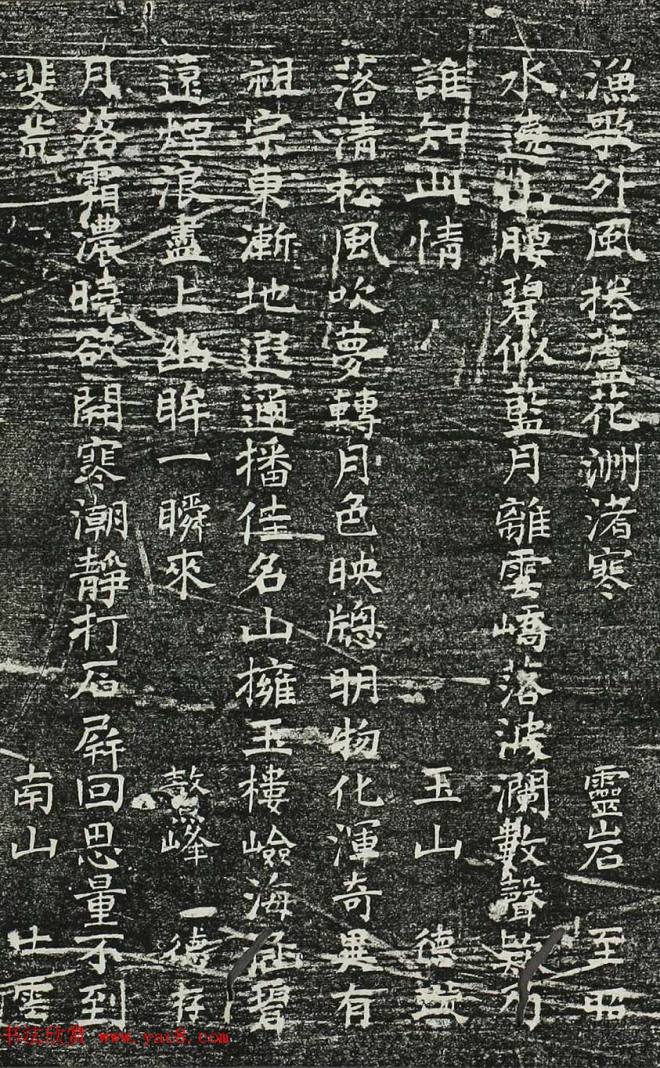 漁歌外風捲蘆花洲渚寒 靈岩 至昭
水遶山腰碧似藍月離雲嶠落波瀾數聲
誰知此情 玉山 德
落清松風吹夢轉月色映牕明物化渾奇異有
祖宗東漸地遐邇播佳名山擁玉樓嶮海涵碧
遠煙浪盡上幽眸一瞬來 鼇峰 一德存
月落霜濃曉欲開寒潮靜打石屏回思量不到
斐荒 南山 雲
书法欣赏 www.yac8.com